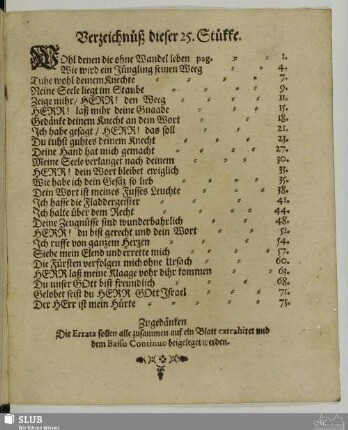 Verzeichnüß dieser 25. Stükke.
WOhl denen die ohne Wandel leben pag. 1.
Wie wird ein Jüngling seinen Weeg 4.
Tuhe wohl deinem Knechte 7.
Meine Seele liegt im Staube 9.
Zeige mihr/ HERR! den Weeg 11.
HERR! laß mihr deine Gnaade 15.
Gedänke deinem Knecht an dein Wort 18.
Ich habe gesagt/ HERR! das soll 21.
Du tuhst guhtes deinem Knecht 23.
Deine Hand hat mich gemacht 27.
Meine Seele verlanget nach deinem 30.
HERR! dein Wort bleibet ewiglich 33.
Wie habe ich dein Gesäz so lieb 35.
Dein Wort ist meines Fusses Leuchte 38.
Ich hasse die Fladdergeister 41.
Ich halte über dem Recht 44.
Deine Zeugnüsse sind wunderbahrlich 48.
HERR! du bist gerecht und dein Wort 51.
Ich ruffe von ganzem Herzen 54.
Siehe mein Elend und errette mich 57.
Die Fürsten verfolgen mich ohne Ursach 60.
HERR laß meine Klaage vohr dihr kommen 63.
Du unser GOtt bist freundlich 68.
Gelobet seist du HERR GOtt Israel 71.
Der HErr ist mein Hürte 73.
Zugedänken
Die Errata sollen alle zusammen auf ein Blatt extrahiret und
dem Basso Continuo beigeleget werden.
SLUB
Wir führen Wissen.